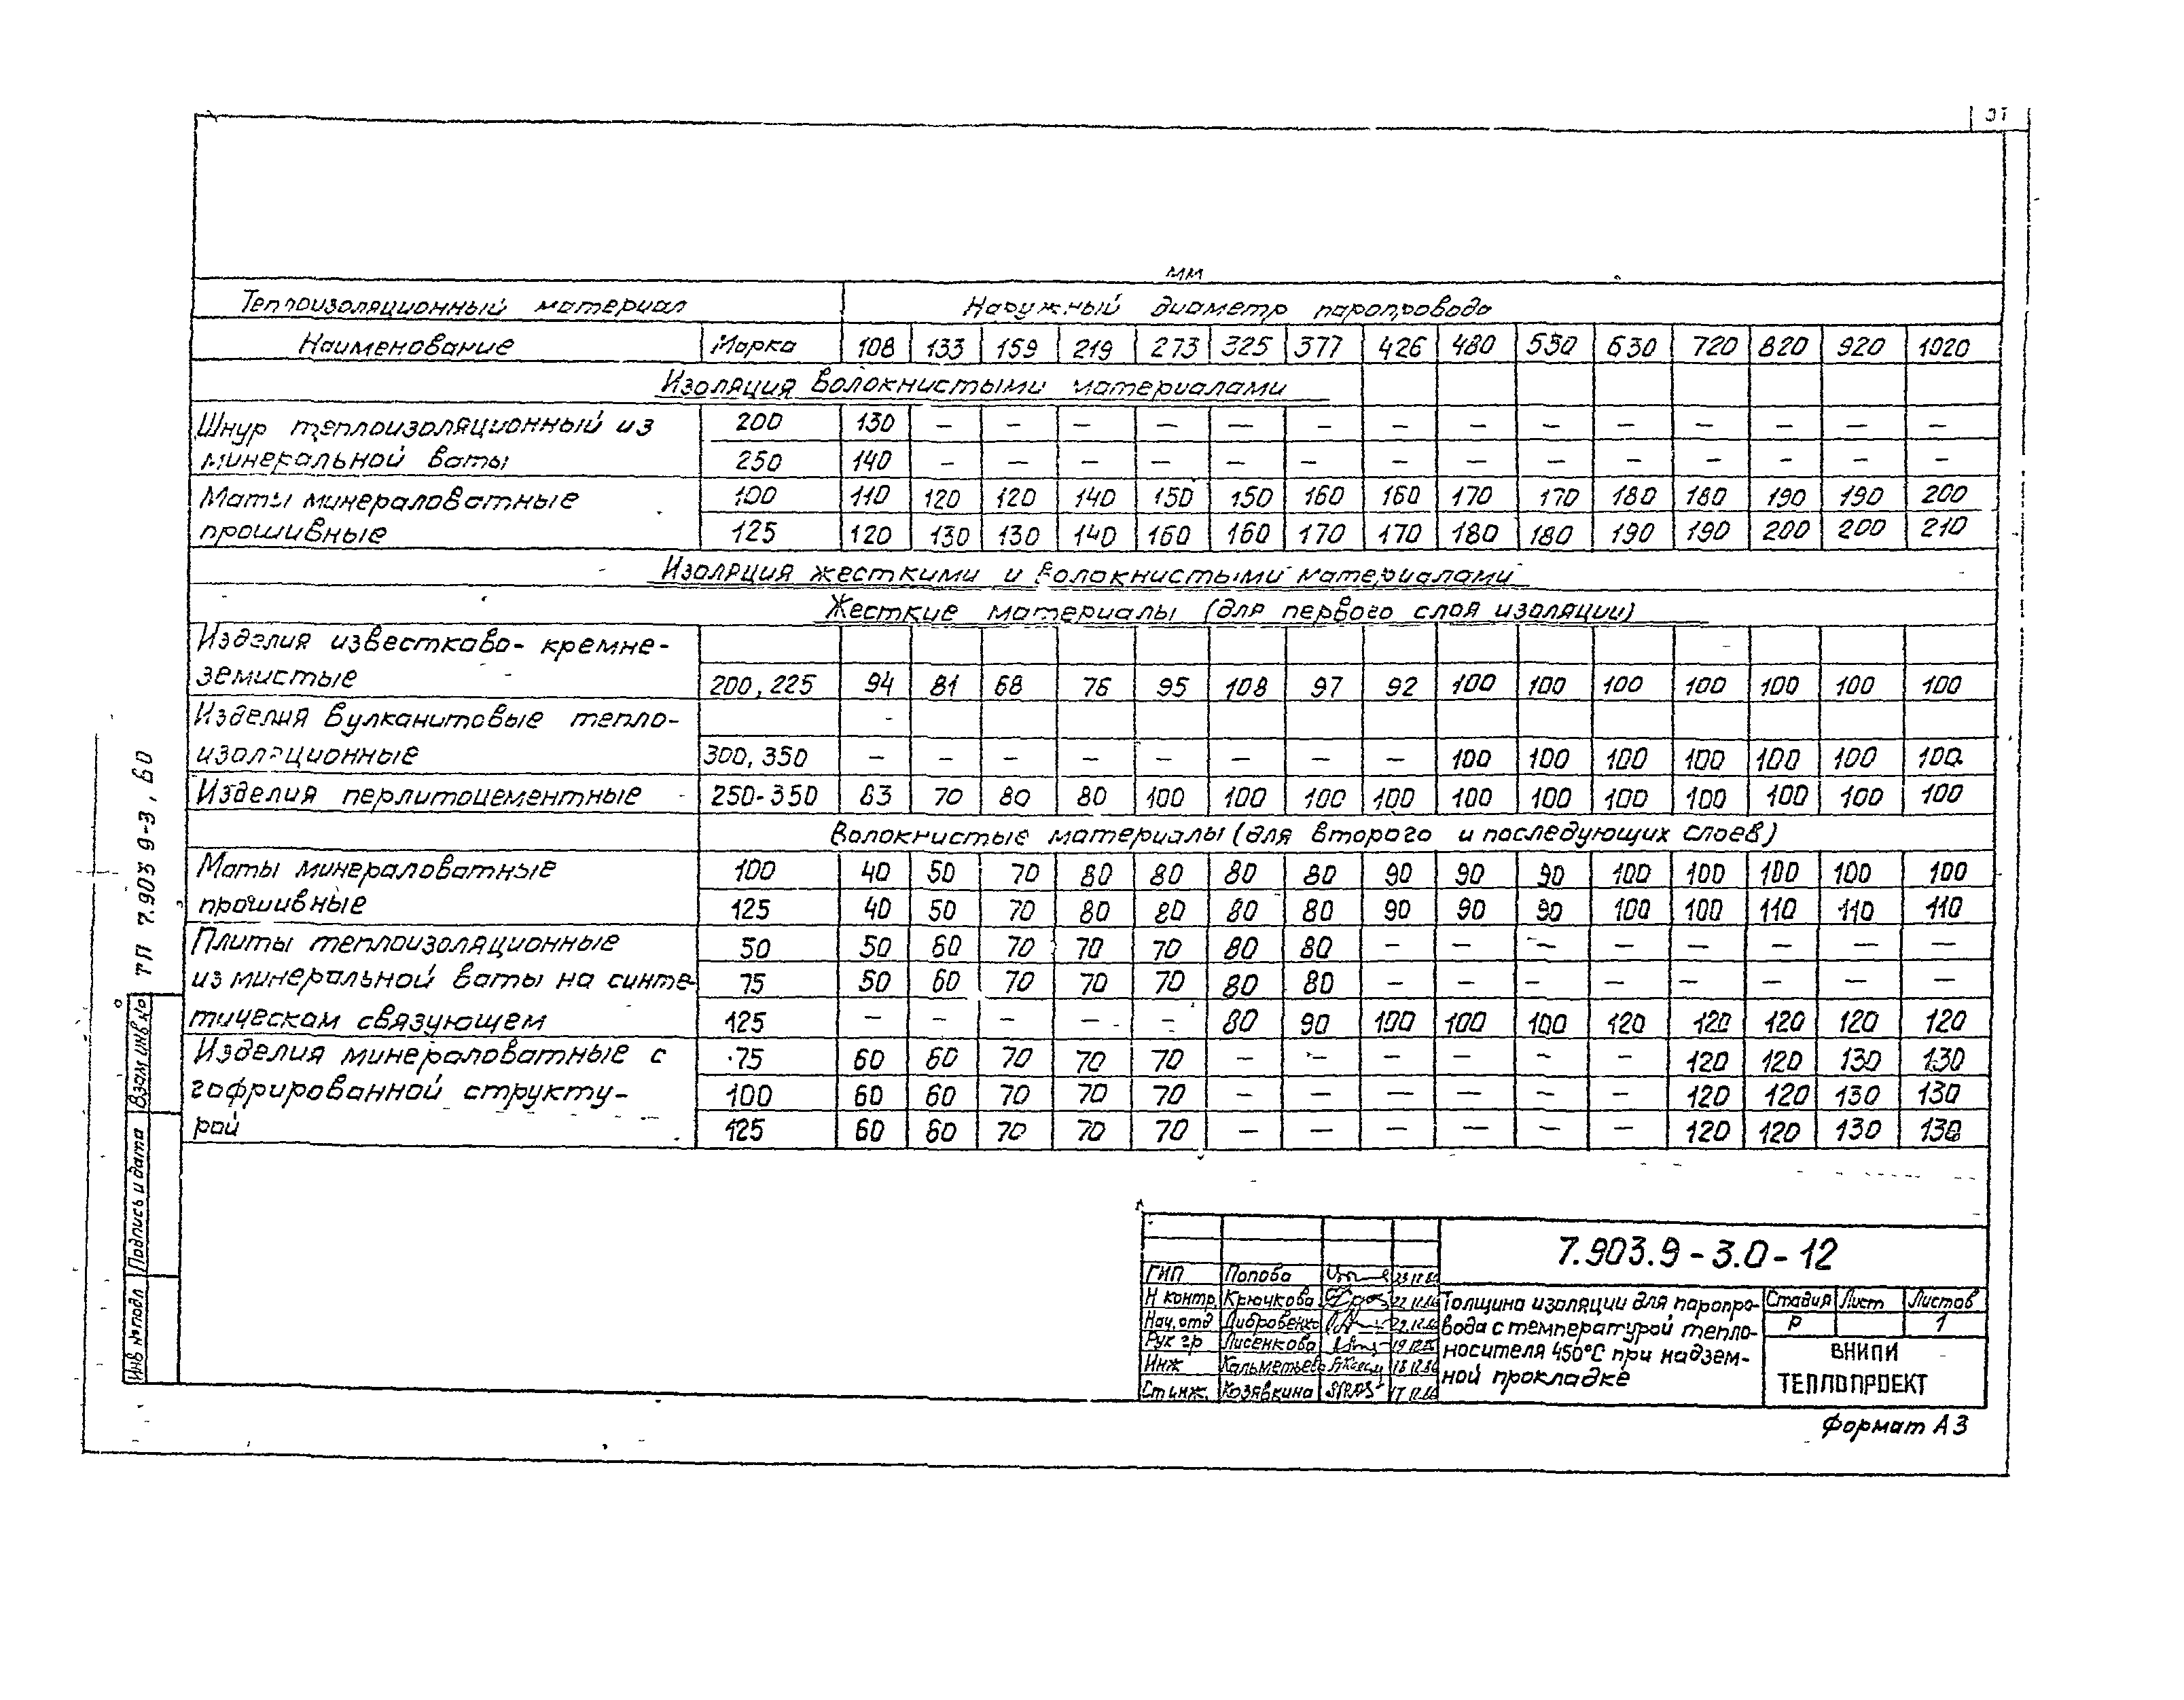 мм
Теплоизоляционный материал Наружный диаметр паропровода
Наименование Марка 108 133 159 219 273 325 377 426 480 530 630 720 820 920 1020
Изоляция волокнистыми материалами
Шнур теплоизоляционный из 200 130 – – – – – – – – – – – – – –
минеральной ваты 250 140 – – – – – – – – – – – – – –
Маты минераловатные 100 110 120 120 140 150 150 160 160 170 170 180 180 190 190 200
прошивные 125 120 130 130 140 160 160 170 170 180 180 190 190 200 200 210
Изоляция жесткими и волокнистыми материалами
Жесткие материалы (для первого слоя изоляции)
Изделия известково-кремне-
земистые 200, 225 94 81 68 76 95 108 97 92 100 100 100 100 100 100 100
Изделия вулканитовые тепло-
изоляционные 300, 350 – – – – – – – – 100 100 100 100 100 100 100
Изделия перлитоцементные 250-350 83 70 80 80 100 100 100 100 100 100 100 100 100 100 100
Волокнистые материалы (для второго и последующих слоев)
Маты минераловатные 100 40 50 70 80 80 80 80 90 90 90 100 100 100 100 100
прошивные 125 40 50 70 80 80 80 80 90 90 90 100 100 110 110 110
Плиты теплоизоляционные 50 50 60 70 70 70 80 80 – – – – – – – –
из минеральной ваты на синте- 75 50 60 70 70 70 80 80 – – – – – – – –
тическом связующем 125 – – – – – 80 90 100 100 100 120 120 120 120 120
Изделия минераловатные с 75 60 60 70 70 70 – – – – – – 120 120 130 130
гофрированной структу- 100 60 60 70 70 70 – – – – – – 120 120 130 130
рой 125 60 60 70 70 70 – – – – – – 120 120 130 130
ТП 7.903 9-3, б0
Взам инв №
Подпись и дата
Инв № подл
7.903.9-3.0-12
ГИП Попова
Н контр. Крючкова 22.12.86
Нач. отд Дибровенко
Рук гр Лисенкова
Инж Кальметьева 18.12.86
Ст инж. Козявкина 17.12.86
Толщина изоляции для паропро-
вода с температурой тепло-
носителя 450°С при надзем-
ной прокладке
Стадия Лист Листов
Р 1
ВНИПИ
ТЕПЛОПРОЕКТ
Формат А3